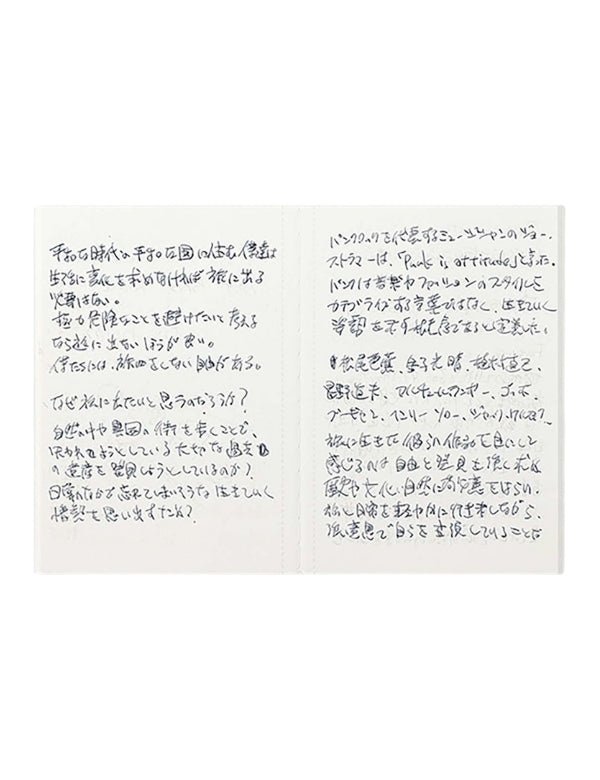 平和な時代の平和な国に住む僕達は
生活に変化を求めなければ旅に出る
必要はない。
極力危険なことを避けたいと考える
なら旅に出ないほうが良い。
僕たちには、旅をしない自由がある。
なぜ旅に出たいと思うのだろうか？
自然の中や異国の街を歩くことで、
失われようとしている大切な過去
の遺産を発見しようとしているのか？
日常のなかで忘れてしまいそうな生きていく
情熱を思い出すため？
パンクロックを代表するミュージシャンのジョー・
ストラマーは、「Punk is attitude」と言った。
パンクは音楽やファッションのスタイルを
カテゴライズする言葉ではなく、生きていく
姿勢を示す言葉であると定義した。
松尾芭蕉、金子光晴、植村直己、
星野道夫、アルチュール・ランボー、ゴッホ
ヘンリー・ソロー、ジャック・ケルアック
旅に生きた彼らの作品を目にして
感じるのは自由と発見を強く求め
歴史や文化、自然に敬意をはらい、
旅と日常を軽やかに行き来しながら、
強い意思で自らを変換していることだ